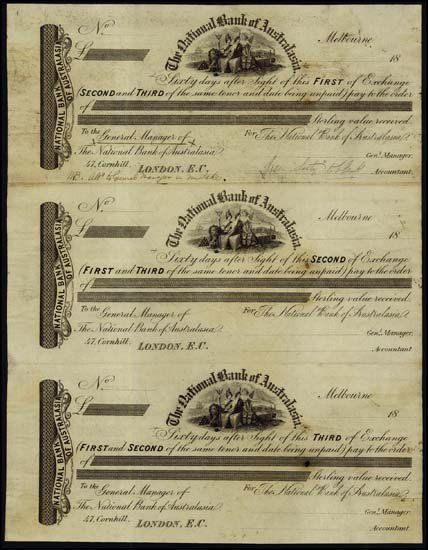 NATIONAL BANK OF AUSTRALASIA
The National Bank of Australasia.
No
Melbourne
£
18
Sixty days after Sight of this FIRST of Exchange
(SECOND and THIRD of the same tenor and date being unpaid) pay to the order
of
Sterling value received.
To the General Manager of
For The National Bank of Australasia
The National Bank of Australasia
Genl. Manager.
47, Cornhill,
LONDON, E.C.
Accountant.
NATIONAL BANK OF AUSTRALASIA
The National Bank of Australasia.
No
Melbourne
£
18
Sixty days after Sight of this SECOND of Exchange
(FIRST and THIRD of the same tenor and date being unpaid) pay to the order
of
Sterling value received.
To the General Manager of
For The National Bank of Australasia
The National Bank of Australasia
Genl. Manager.
47, Cornhill,
LONDON, E.C.
Accountant.
NATIONAL BANK OF AUSTRALASIA
The National Bank of Australasia.
No
Melbourne
£
18
Sixty days after Sight of this THIRD of Exchange
(FIRST and SECOND of the same tenor and date being unpaid) pay to the order
of
Sterling value received.
To the General Manager of
For The National Bank of Australasia
The National Bank of Australasia
Genl. Manager.
47, Cornhill,
LONDON, E.C.
Accountant.